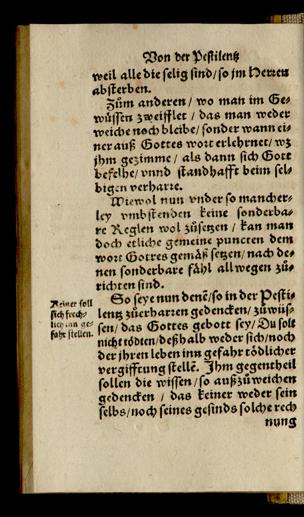 Von der Pestilentz
weil alle die selig sind/so jm Herren
absterben.
Zům anderen/ wo man im Ge-
wüssen zweifflet / das man weder
weiche noch bleibe/ sonder wann ei-
ner auß Gottes wort erlehrnet/ wz
jhm gezimme/ als dann sich Gott
befelhe/ vnnd standhafft beim sel-
bigen verharre.
Wiewol nun vnder so mancher-
ley vmbstenden keine sonderba-
re Reglen wol zůsetzen/ kan man
doch etliche gemeine puncten dem
wort Gottes gemäß setzen/ nach de-
nen sonderbare fähl all wegen zů-
richten sind.
So seye nun denẽ/so in der Pesti-
lentz zůerharren gedencken/ zů wüs-
sen/ das Gottes gebott sey/ Du solt
nicht tödten/ deßhalb weder sich/noch
der jhren leben inn gefahr tödlicher
vergifftung stellẽ. Jhm gegentheil
sollen die wissen/ so außzůweichen
gedencken / das keiner weder sein
selbs/noch seines gesinds solche rech
nung
Keiner soll
sich frech-
lich inn ge-
fahr stellen.